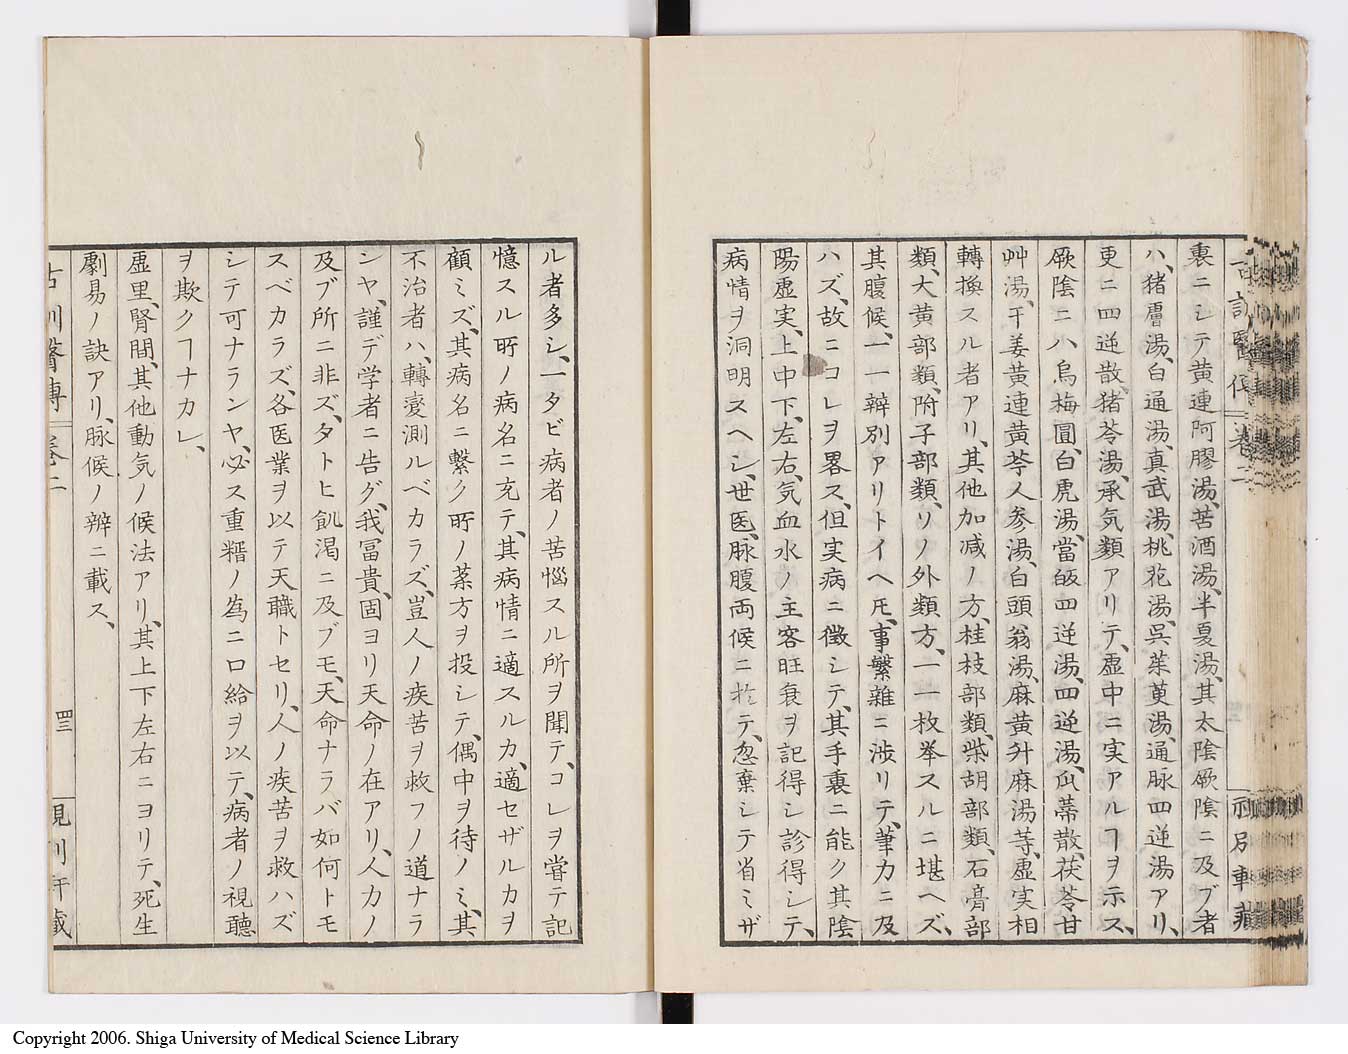 裏ニシテ黄連阿膠湯、苦酒湯、半夏湯、其太陰厥陰ニ及ブ者
ハ、猪膚湯、白通湯、真武湯、桃花湯、呉茱萸湯、通脉四逆湯アリ、
更ニ四逆散、猪苓湯、承気類アリテ、虚中ニ実アルヿヲ示ス、
厥陰ニハ烏梅圓、白虎湯、當皈四逆湯、四逆湯、瓜蔕散、茯苓甘
艸湯、干姜黄連黄芩人参湯、白頭翁湯、麻黄升麻湯等、虚実相
轉換スル者アリ、其他加减ノ方、桂枝部類、柴胡部類、石膏部
類、大黄部類、附子部類、ソノ外類方、一一枚挙スルニ堪ヘズ、
其腹候、一一辨別アリトイヘ𪜈、事繁雜ニ渉リテ、筆力ニ及
ハズ、故ニコレヲ畧ス、但実病ニ徴シテ、其手裏ニ能ク其陰
陽虚実、上中下、左右、気血水ノ主客旺衰ヲ記得シ診得シテ、
病情ヲ洞明スヘシ、世医、脉腹両候ニ於テ、忽棄シテ省ミザ
ル者多シ、一タビ病者ノ苦惱スル所ヲ聞テ、コレヲ甞テ記
憶スル所ノ病名ニ充テ、其病情ニ適スルカ、適セザルカヲ
顧ミズ、其病名ニ繋ク所ノ薬方ヲ投シテ、偶中ヲ待ノミ、其
不治者ハ、轉変測ルベカラズ、豈人ノ疾苦ヲ救フノ道ナラ
シヤ、謹デ学者ニ告グ、我冨貴、固ヨリ天命ノ在アリ、人力ノ
及ブ所ニ非ズ、タトヒ飢渇ニ及ブモ、天命ナラバ如何トモ
スベカラズ、各医業ヲ以テ天職トセリ、人ノ疾苦ヲ救ハズ
シテ可ナランヤ、必ス重糈ノ為ニ口給ヲ以テ、病者ノ視聽
ヲ欺クヿナカレ、
虚里、腎間、其他動気ノ候法アリ、其上下左右ニヨリテ、死生
劇易ノ訣アリ、脉候ノ辨ニ載ス、
古訓醫傳 卷二
四三
Copyright 2006. Shiga University of Medical Science Library